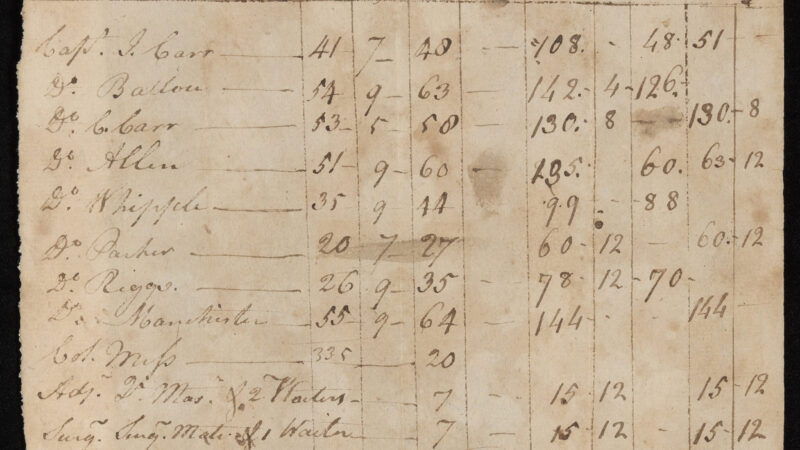 Capt. J. Carr 41 7 48 - 108. - 48. 51 -
Do. Ballou 54 9 63 - 142. 4 - 126.
Do. C. Carr 53 5 58 - 130. 8 - - 130. - 8
Do. Allen 51 9 60 - 135. 60. 63 - 12
Do. Whipple 35 9 44 99 - 88
Do. Parker 20 7 27 60 - 12 - 60. - 12
Do. Riggs. 26 9 35 - 78 12 - 70 -
Do. Manchester 55 9 64 - 144 - 144 -
Col. Mess 335 20
Adj. Qr. Mas. & 2 Waiters - 7 - 15. 12 15 - 12
Surg. Surg. Mate & 1 Waiter - 7 - 15. 12 - 15 - 12